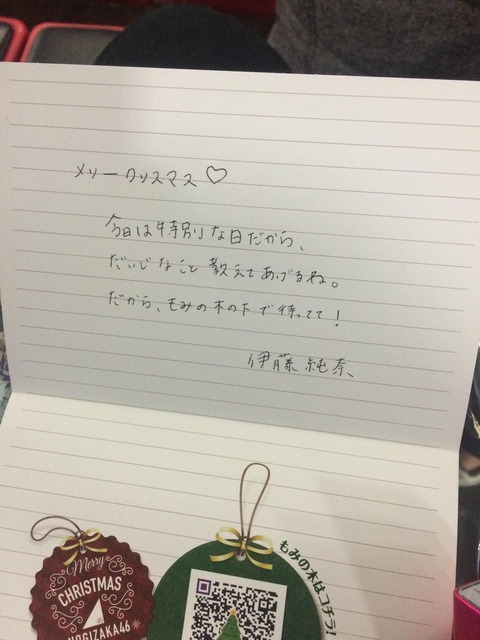 メリークリスマス♡
今日は特別な日だから、
だいじなこと教えてあげるね。
だから、もみの木の下で待ってて!
伊藤純奈
Merry
CHRISTMAS
NOGIZAKA46
もみの木はコチラ!